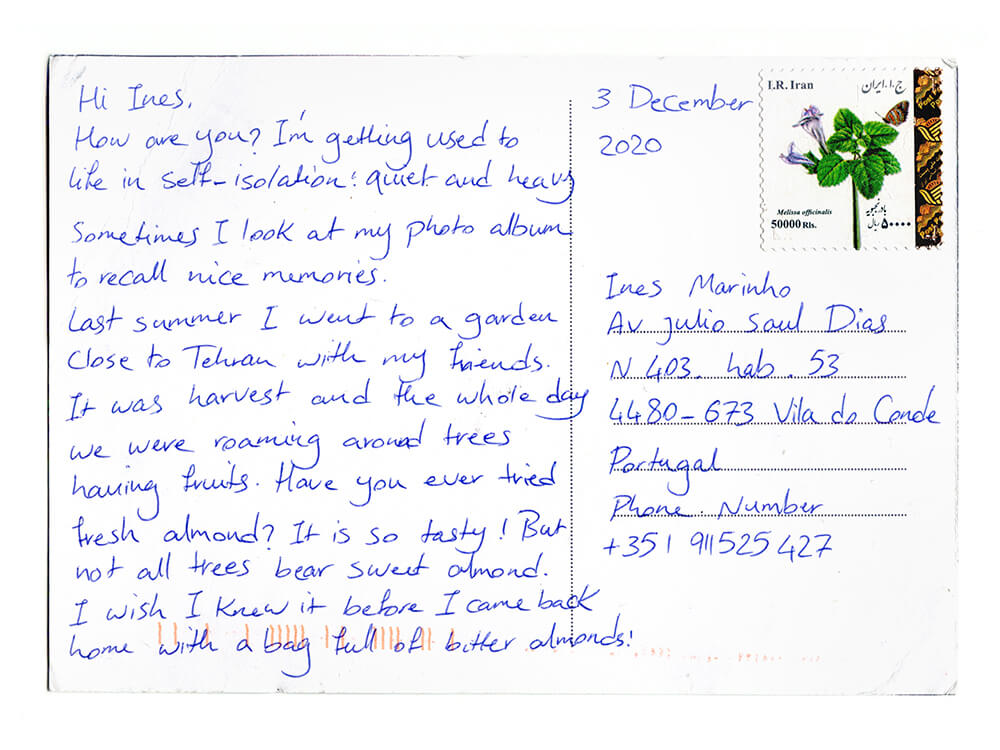 Hi Ines,
How are you? I'm getting used to
life in self-isolation: quiet and heavy
Sometimes I look at my photo album
to recall nice memories.
Last summer I went to a garden
close to Tehran with my friends.
It was harvest and the whole day
we were roaming around trees
having fruits. Have you ever tried
fresh almond? It is so tasty! But
not all trees bear sweet almond.
I wish I knew it before I came back
home with a bag full of bitter almonds!
3 December
2020
I.R. Iran ج.ا.ایران
Melissa officinalis
50000 Rls.
۵۰۰۰۰ ریال
Ines Marinho
Av julio saul Dias
N 403. hab. 53
4480-673 Vila do Conde
Portugal
Phone Number
+351 911525427